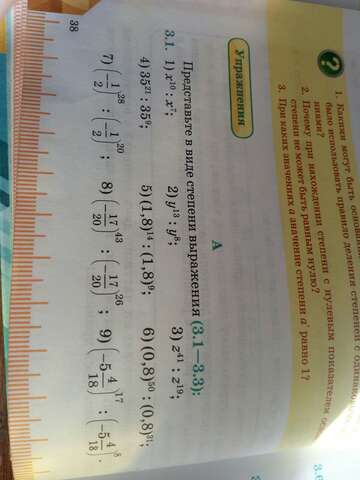 1. Какими могут быть основа
было использовать правило деления степеней с одинако
ниями?
2. Почему при нахождении степени с нулевым показателем ос
степени не может быть равным нулю?
3. При каких значениях a значение степени a равно 1?
Упражнения
А
Представьте в виде степени выражения (3.1—3.3):
3.1. 1) x¹⁰ : x⁷; 2) y¹³ : y⁸; 3) z⁴¹ : z¹⁹;
4) 35²¹ : 35⁶; 5) (1,8)¹⁴ : (1,8)⁹; 6) (0,8)⁵⁰ : (0,8)³¹;
7) (-1/2)³⁸ : (-1/2)²⁰; 8) (-17/20)⁴³ : (-17/20)²⁶; 9) (-5 4/18)¹⁷ : (-5 4/18)⁸.
38